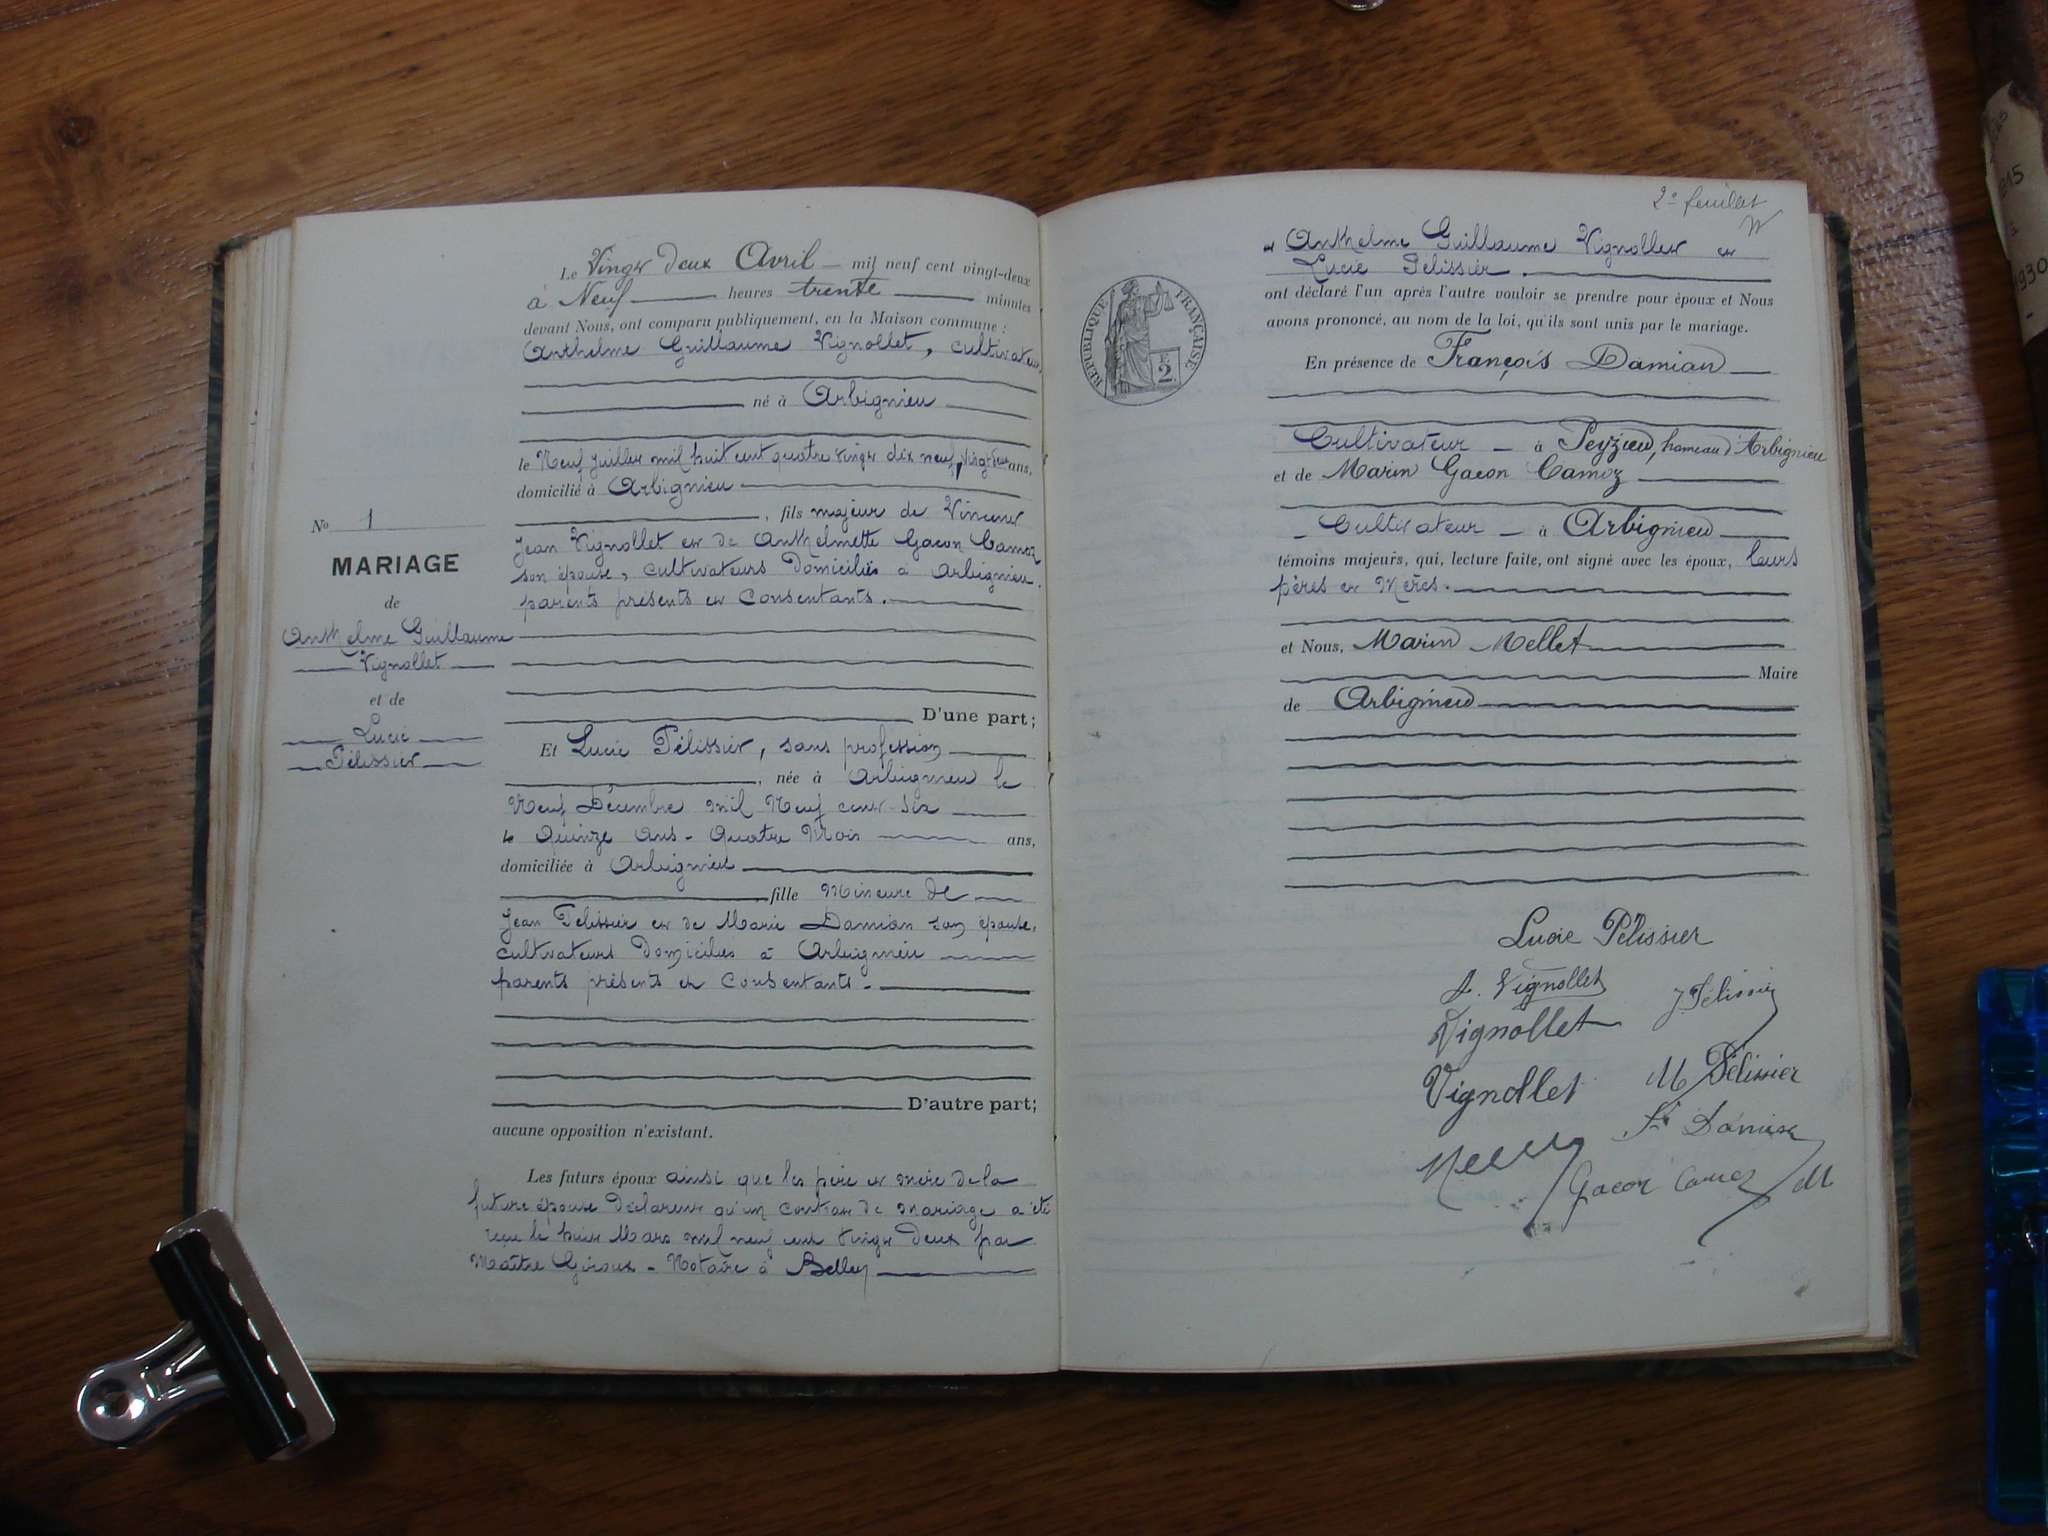 Le Vingt deux Avril mil neuf cent vingt-deux
à Neuf heures trente minutes
devant Nous, ont comparu publiquement, en la Maison commune :
Anthelme Guillaume Vignollet, cultivateur,
né à Arbignieu
le Neuf Juillet mil huit cent quatre vingt dix neuf, vingt deux ans,
domicilié à Arbignieu
, fils majeur de Vincent
Jean Vignollet et de Anthelmette Gacon Camoz
son épouse, cultivateurs domiciliés à Arbignieu.
parents présents et consentants.
No 1
MARIAGE
de
Anthelme Guillaume
Vignollet
et de
Lucie
Pélissier
D'une part;
Et Lucie Pélissier, sans profession
, née à Arbignieu le
Neuf Décembre mil Neuf cent six
Quinze ans - Quatre Mois ans,
domiciliée à Arbignieu
, fille Mineure de
Jean Pelissier et de Marie Damian son épouse,
cultivateurs domiciliés à Arbignieu
parents présents et consentants.
D'autre part;
aucune opposition n'existant.
Les futurs époux ainsi que les père et mère de la
future épouse déclarent qu'un contrat de mariage a été
reçu le huit Mars mil neuf cent vingt deux par
Maître - Notaire à Belley
2e feuillet
Anthelme Guillaume Vignollet et
Lucie Pélissier.
RÉPUBLIQUE FRANÇAISE
2
ont déclaré l'un après l'autre vouloir se prendre pour époux et Nous
avons prononcé, au nom de la loi, qu'ils sont unis par le mariage.
En présence de François Damian
Cultivateur à Peyzieu, hameau d'Arbignieu
et de Marin Gacon Camoz
Cultivateur à Arbignieu
témoins majeurs, qui, lecture faite, ont signé avec les époux, leurs
pères et Mères.
et Nous, Marin Mellet
Maire
de Arbignieu
Lucie Pélissier
A. Vignollet J. Pélissier
Vignollet
Vignollet M Pélissier
Fs Damian
Gacon Camoz M
1930